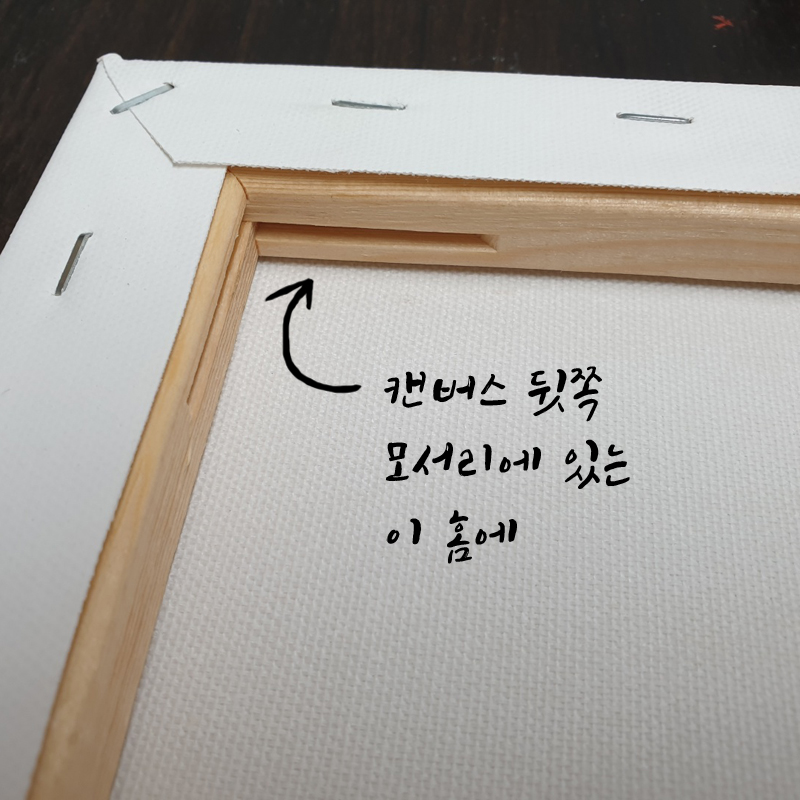 캔버스 뒷쪽
모서리에 있는
이 홈에